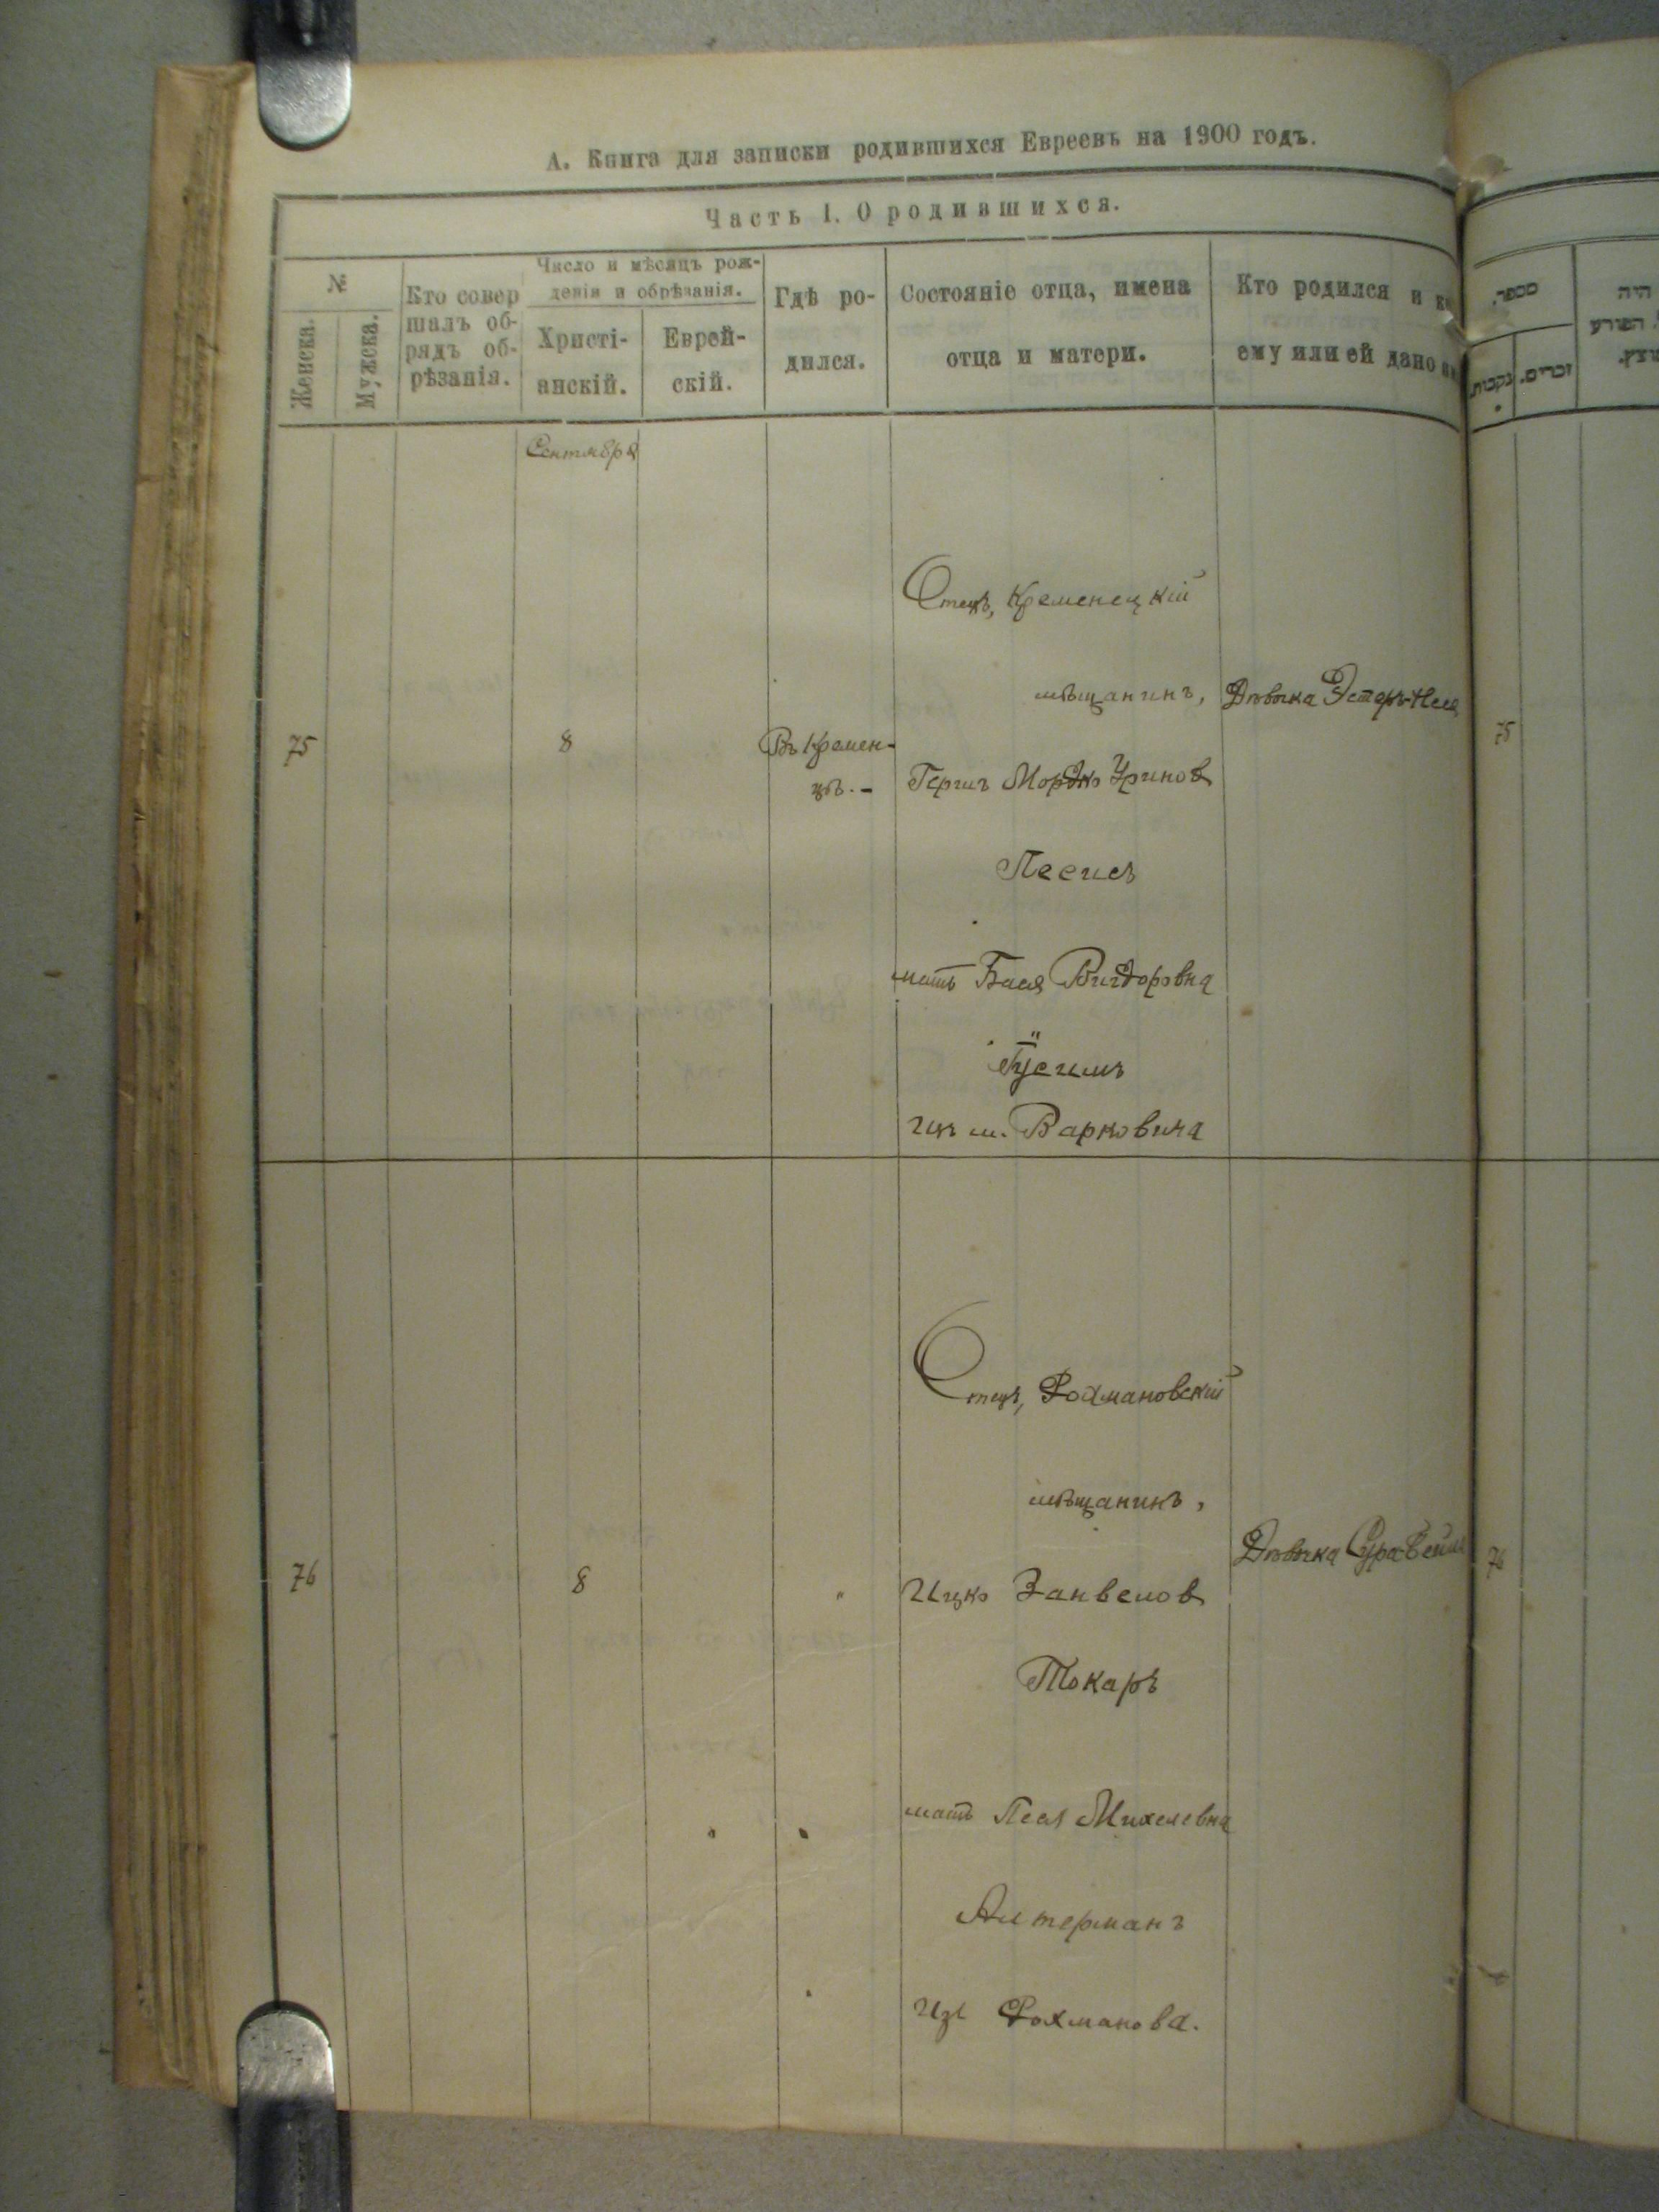 А. Книга для записки родившихся Евреевъ на 1900 годъ.
Часть I. О родившихся.
№
Женска.
Мужска.
Кто совер
шалъ об-
рядъ об-
рѣзанія.
Число и мѣсяцъ рож-
денія и обрѣзанія.
Христі-
анскій.
Еврей-
скій.
Гдѣ ро-
дился.
Состояніе отца, имена
отца и матери.
Кто родился и
ему или ей дано
Сентября
75
8
Въ Кремен-
цѣ.-
Отецъ, Кременецкій
мѣщанинъ,
Мордко
Песисъ
мать Бася Вигдоровна
изъ м. Варковича
Дѣвочка Эстеръ-
76
8
"
Отецъ, Рохмановскій
мѣщанинъ,
Ицко Занвелов
Токаръ
мать Песя Михелевна
Алтерманъ
изъ Рохманова.
Дѣвочка Сура-
מספר.
נקבות.
זכרים.
היה
הפורע
75
76